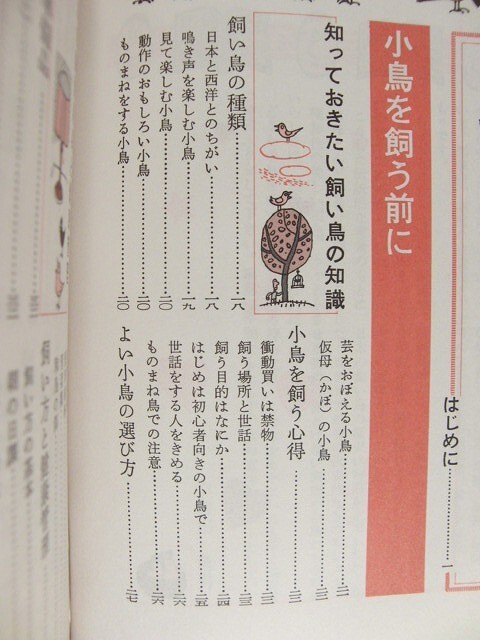 はじめに……一
小鳥を飼う前に
知っておきたい飼い鳥の知識
飼い鳥の種類……一八
日本と西洋とのちがい……一八
鳴き声を楽しむ小鳥……一九
見て楽しむ小鳥……二〇
動作のおもしろい小鳥……二〇
ものまねをする小鳥……二〇
芸をおぼえる小鳥……二一
仮母（かぼ）の小鳥……二一
小鳥を飼う心得……二三
衝動買いは禁物……二三
飼う場所と世話……二三
飼う目的はなにか……二四
はじめは初心者向きの小鳥で……二五
世話をする人をきめる……二六
ものまね鳥での注意……二六
よい小鳥の選び方……二七